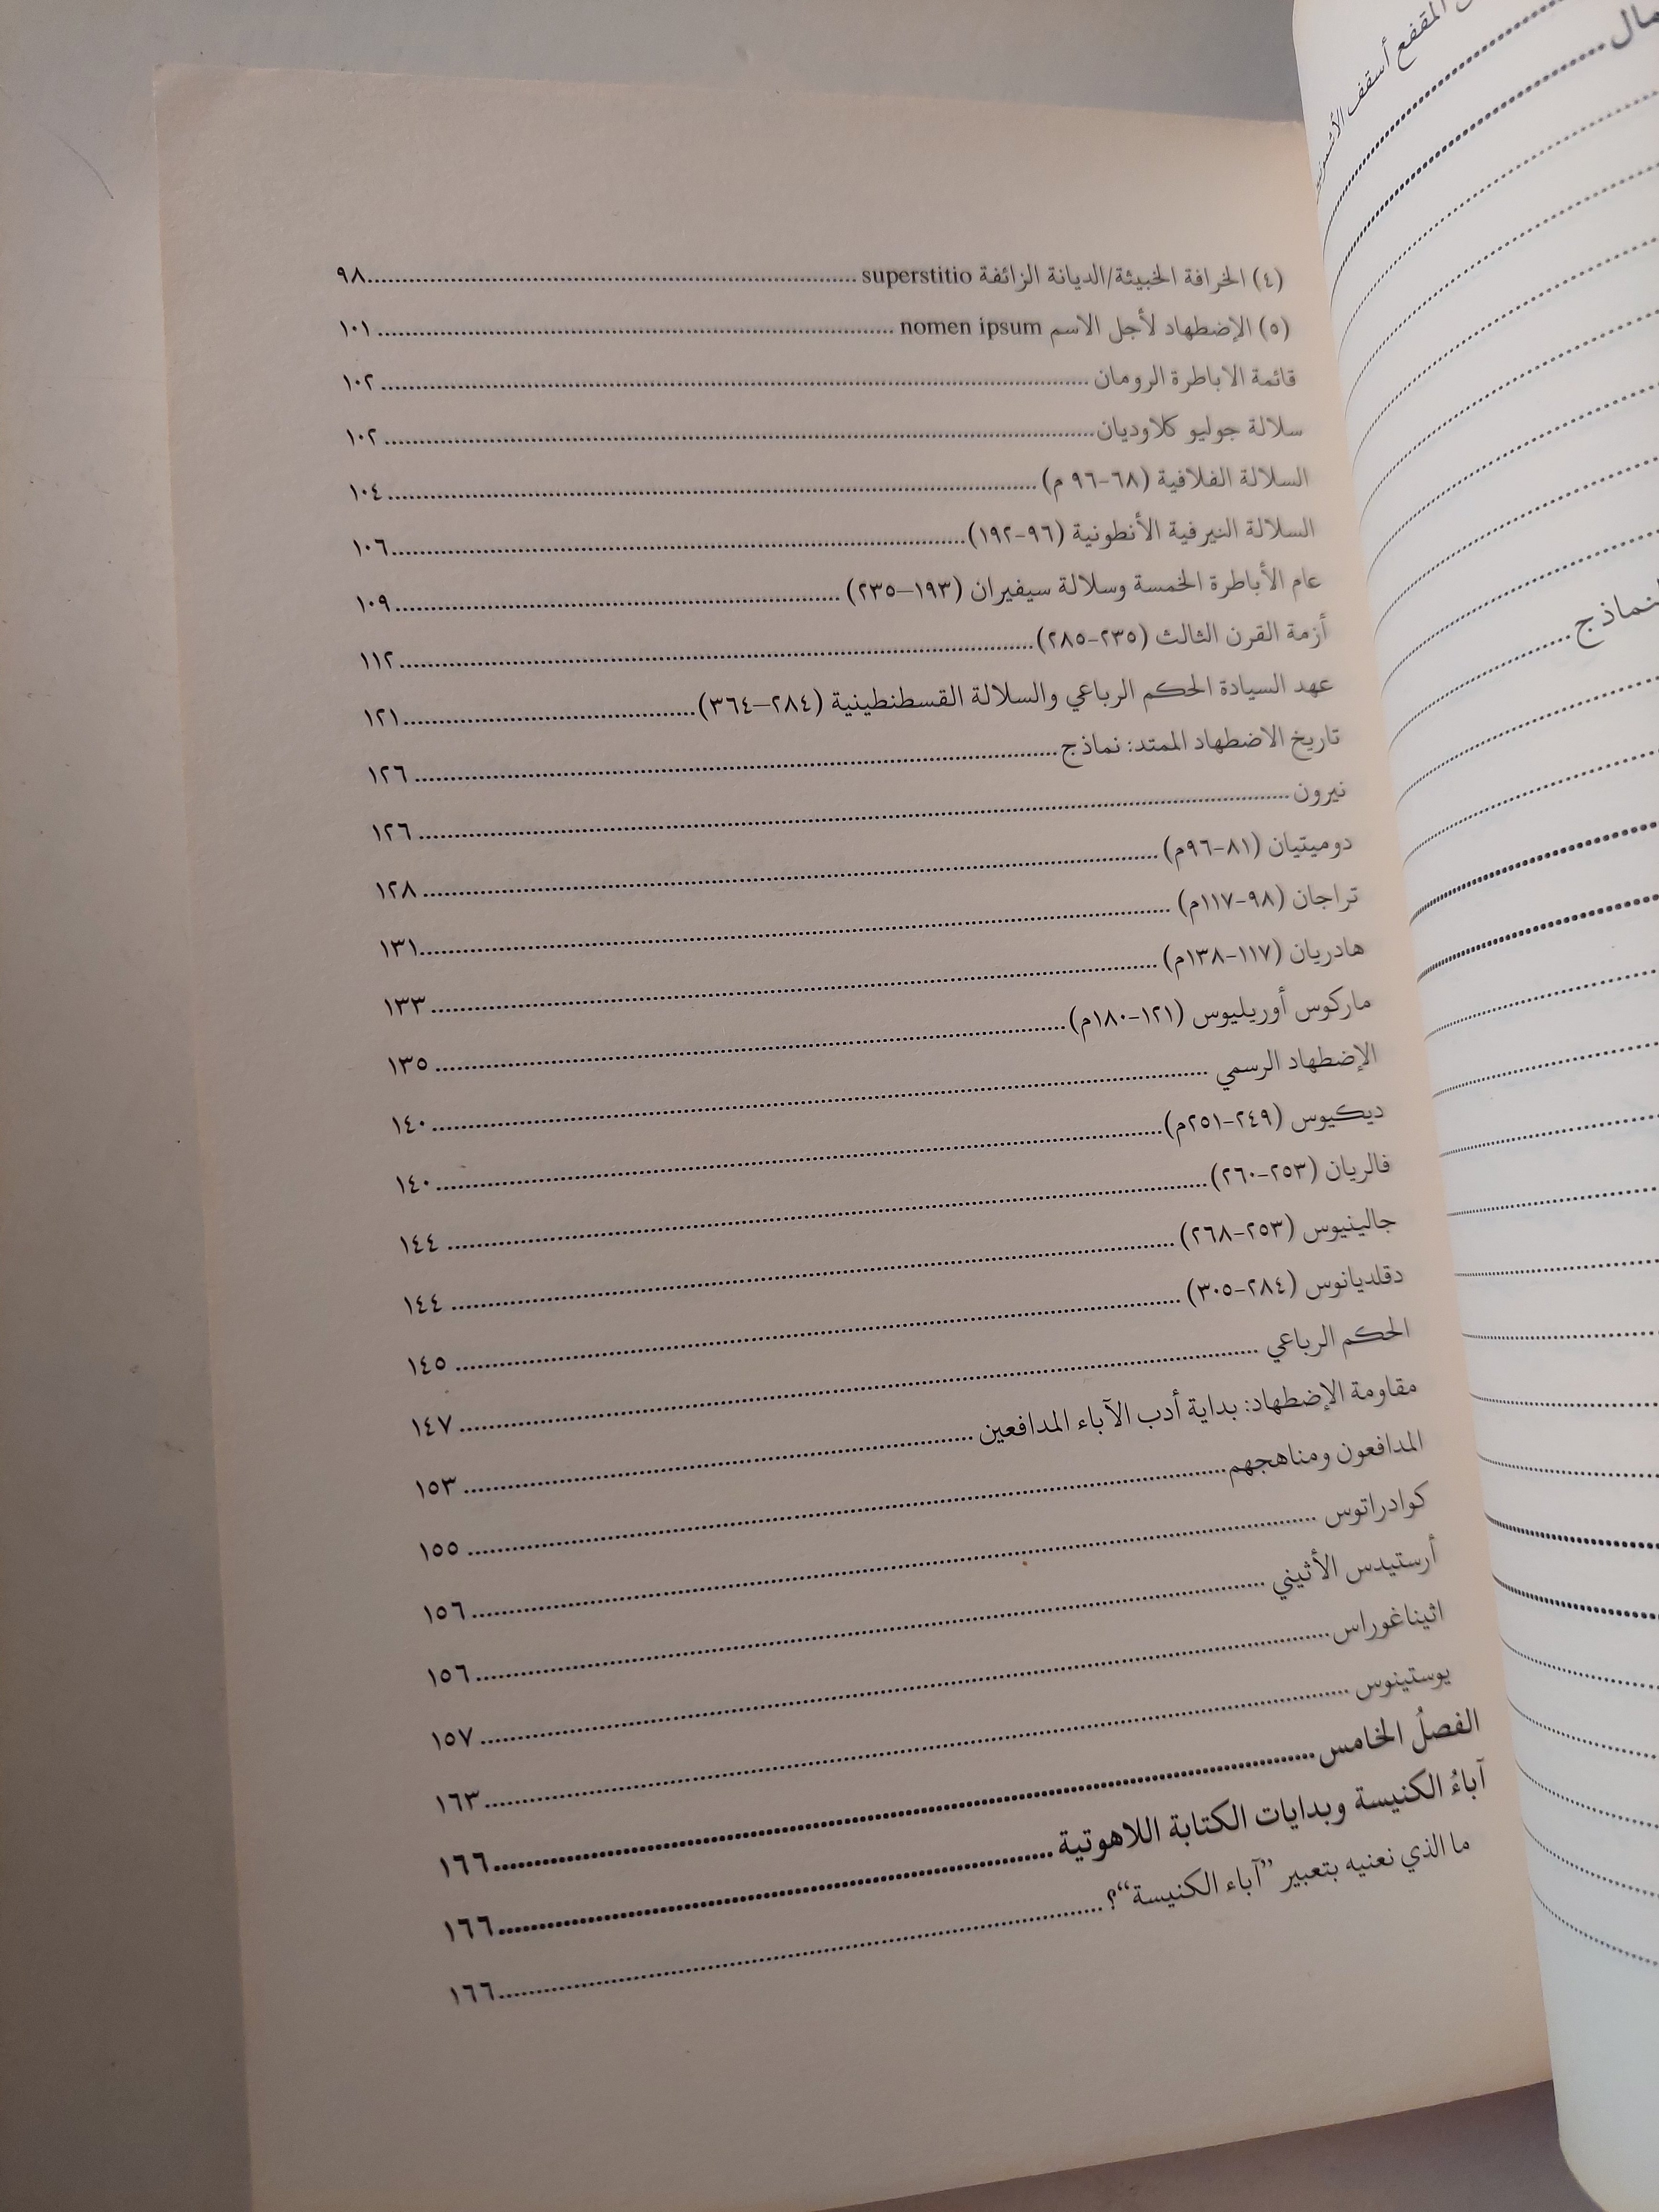 (٤) الخرافة الخبيثة/الديانة الزائفة superstitio ........................ ٩٨
(٥) الإضطهاد لأجل الاسم nomen ipsum ........................ ١٠١
قائمة الاباطرة الرومان ........................ ١٠٢
سلالة جوليو كلاوديان ........................ ١٠٢
السلالة الفلافية (٦٨-٩٦ م) ........................ ١٠٤
السلالة النيرفية الأنطونية (٩٦-١٩٢) ........................ ١٠٦
عام الأباطرة الخمسة وسلالة سيفيران (١٩٣–٢٣٥) ........................ ١٠٩
أزمة القرن الثالث (٢٣٥-٢٨٥) ........................ ١١٢
عهد السيادة الحكم الرباعي والسلالة القسطنطينية (٢٨٤–٣٦٤) ........................ ١٢١
تاريخ الاضطهاد الممتد: نماذج ........................ ١٢٦
نيرون ........................ ١٢٦
دوميتيان (٨١-٩٦م) ........................ ١٢٨
تراجان (٩٨-١١٧م) ........................ ١٣١
هادريان (١١٧-١٣٨م) ........................ ١٣٣
ماركوس أوريليوس (١٢١-١٨٠م) ........................ ١٣٥
الإضطهاد الرسمي ........................ ١٤٠
ديكيوس (٢٤٩-٢٥١م) ........................ ١٤٠
فالريان (٢٥٣-٢٦٠) ........................ ١٤٤
جالينيوس (٢٥٣-٢٦٨) ........................ ١٤٤
دقلديانوس (٢٨٤-٣٠٥) ........................ ١٤٥
الحكم الرباعي ........................ ١٤٧
مقاومة الإضطهاد: بداية أدب الآباء المدافعين ........................ ١٥٣
المدافعون ومناهجهم ........................ ١٥٥
كوادراتوس ........................ ١٥٦
أرستيدس الأثيني ........................ ١٥٦
اثيناغوراس ........................ ١٥٧
يوستينوس ........................ ١٦٣
الفصلُ الخامس ........................ ١٦٦
آباءُ الكنيسة وبدايات الكتابة اللاهوتية ........................ ١٦٦
ما الذي نعنيه بتعبير ”آباء الكنيسة“؟ ........................ ١٦٦
المقفع أسقف